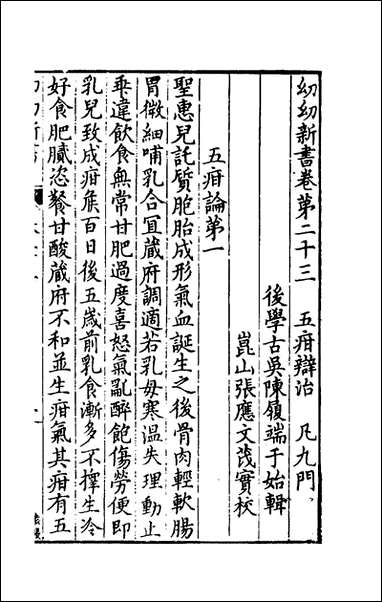 幼幼新書卷第二十三　五疳辯治　凡九門
後學古吳陳履端于始輯
崑山張應文茂實校
五疳論第一
聖惠兒託質胞胎成形氣血誕生之後骨肉輕軟腸
胃微細哺乳合宜藏府調適若乳母寒溫失理動止
乖違飲食無常甘肥過度喜怒氣亂醉飽傷勞便即
乳兒致成疳矦百日後五歲前乳食漸多不擇生冷
好食肥膩恣餐甘酸藏府不和並生疳氣其疳有五